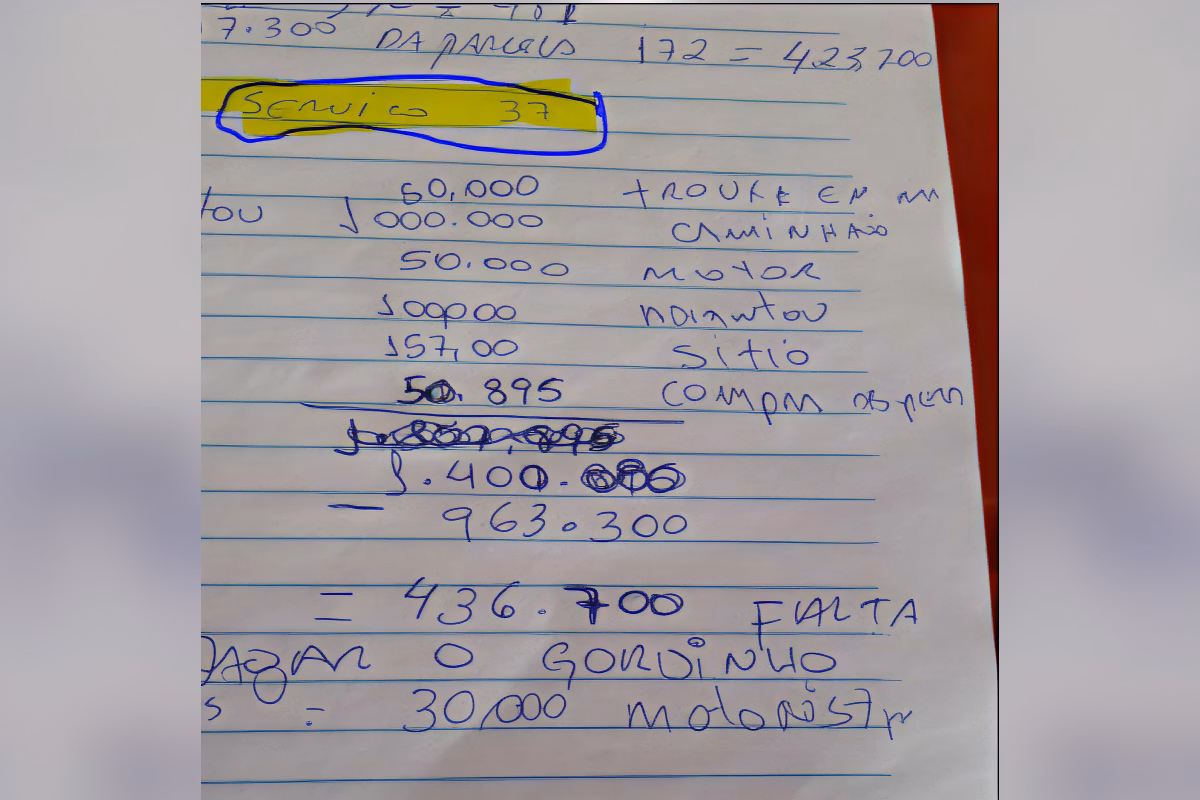 7.300 DA PARCELS 172 = 423,700
SERVICO 37
60,000 TROUXE EN M
tou 1000.000 CAMINHAO
50.000 MOTOR
100000 ADIANTOU
157,00 SITIO
50.895 COMPRA
1.400.
— 963.300
= 436.700 FALTA
PAGAR O GORDINHO
s = 30,000 MOTORISTA